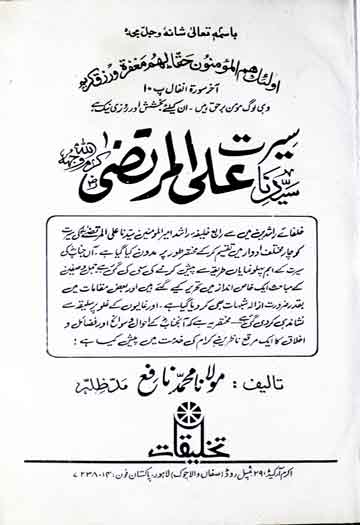 باسمہٖ تعالیٰ شانہٗ وجل مجدہٗ
اولئك هم المؤمنون حقا لهم مغفرة ورزق كريم
آخر سورۃ انفال پ ۱۰
وہی لوگ مومن برحق ہیں ۔ ان کیلئے بخشش اور روزی نیک ہے
سیرت
سیدنا علی المرتضیٰ کرم اللہ وجہہ
خلفائے راشدین میں سے رابع خلیفہ راشد امیر المؤمنین سیدنا علی المرتضیٰ کی سیرت
کو چار مختلف ادوار میں تقسیم کرکے مختصر طور پر مدون کیا گیا ہے ۔ آں جناب کی
سیرت کے اہم پہلو نمایاں طریقہ سے پیش کرنے کی سعی کی گئی ہے جمل وصفین
کے مباحث ایک خاص انداز میں تحریر کیے گئے ہیں اور بعض مقامات میں
بقدر ضرورت ازالہ شبہات بھی کردیا گیا ہے ۔ اور غالیوں کے غلو پر سلیقہ سے
نشاندہی کردی گئی ہے ۔ مختصر یہ ہے کہ آنجناب کے احوال و سوانح اور فضائل و
اخلاق کا ایک مرقع ناظرین کرام کی خدمت میں پیش کیا ہے ؛
تالیف : مولانا محمد نافع مدظلہٗ
تخلیقات
اکرم آرکیڈ، ۲۹ ٹمپل روڈ (صفاں والا چوک) لاہور، پاکستان فون : ۷۲۳۸۰۱۴